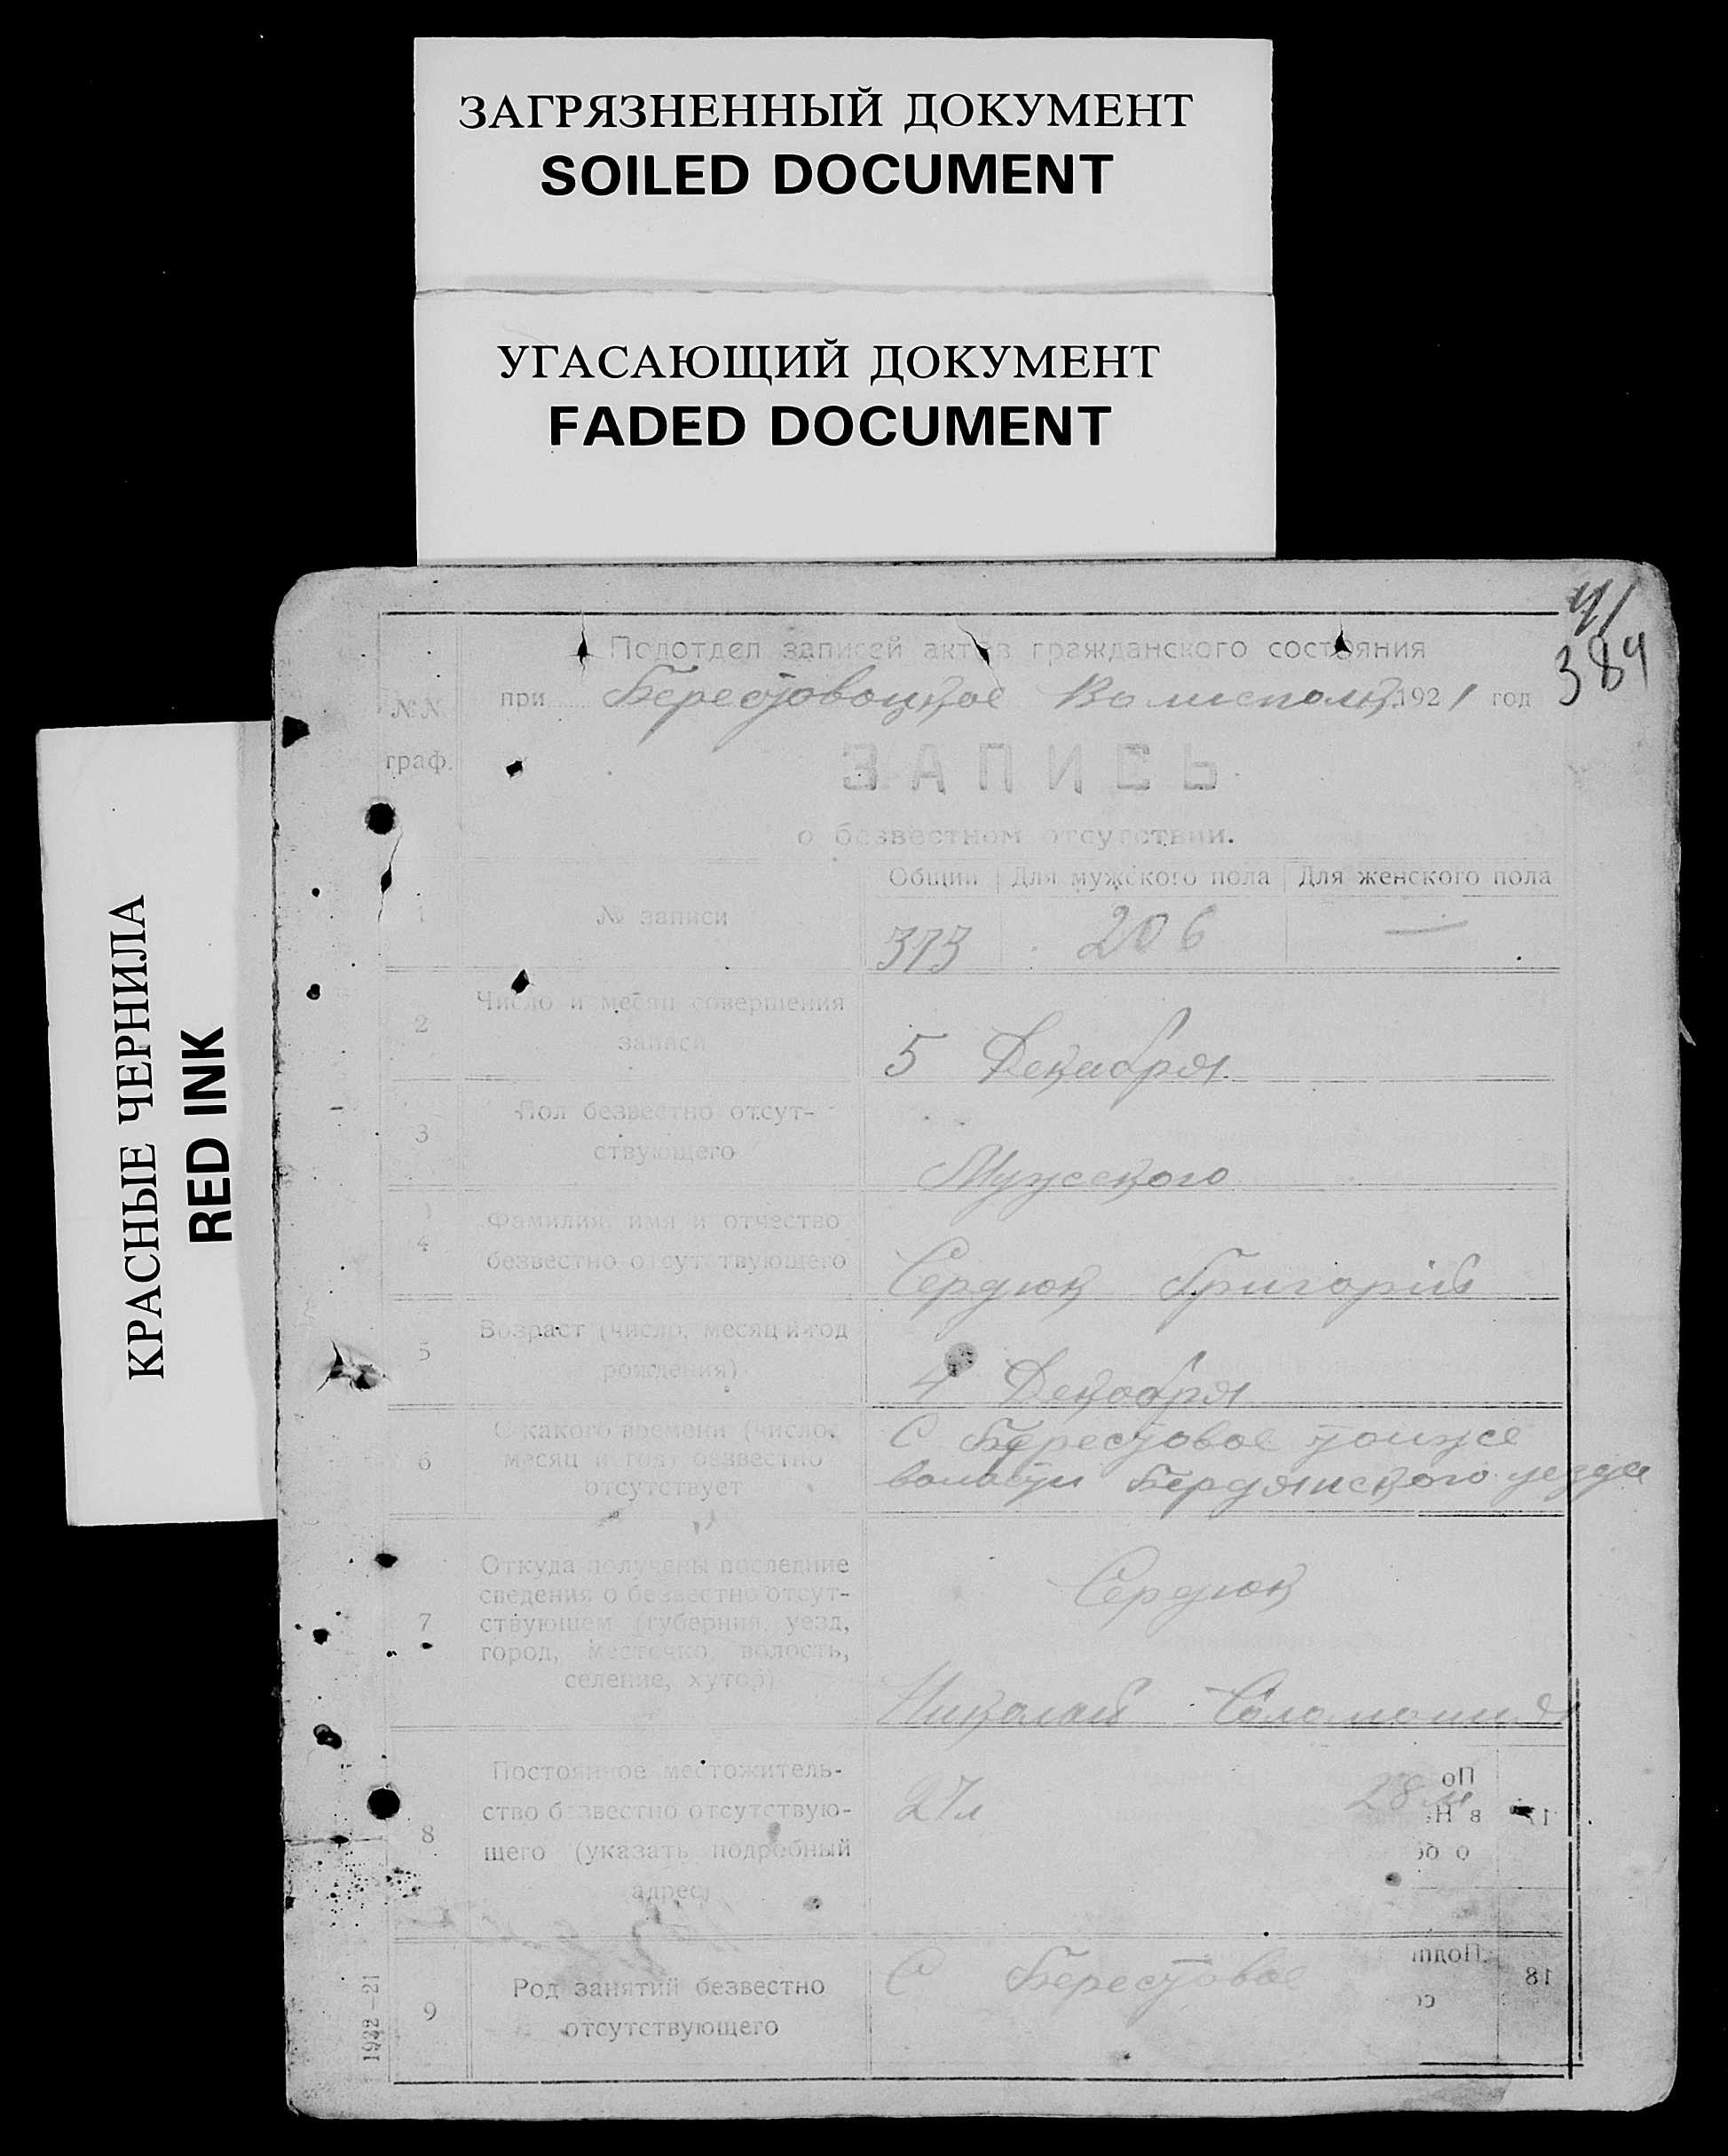 ЗАГРЯЗНЕННЫЙ ДОКУМЕНТ
SOILED DOCUMENT
УГАСАЮЩИЙ ДОКУМЕНТ
FADED DOCUMENT
КРАСНЫЕ ЧЕРНИЛА
RED INK
384
Подотдел записей актов гражданского состояния
№№ граф.
при Берестовоцкое 1921 год
ЗАПИСЬ
о безвестном отсутствии.
Общий Для мужского пола Для женского пола
1 № записи 373 206 —
2 Число и месяц совершения
записи 5 Декабря
3 Пол безвестно отсут-
ствующего Мужского
4 Фамилия, имя и отчество
безвестно отсутствующего Сердюк Григорій
5 Возраст (число, месяц и год
рождения) 4 Декабря
6 С какого времени (число,
месяц и год) безвестно
отсутствует
С Берестовое тоиже
волости Бердянского уезда
7 Откуда получены последние
сведения о безвестно отсут-
ствующем (губерния, уезд,
город, местечко, волость,
селение, хутор)
Сердюк
Николай
8 Постоянное местожитель-
ство безвестно отсутствую-
щего (указать подробный
адрес)
27л 28
По
в Н
о об
17
9 Род занятий безвестно
отсутствующего
С Берестовое
Подп
со
18
1932—21